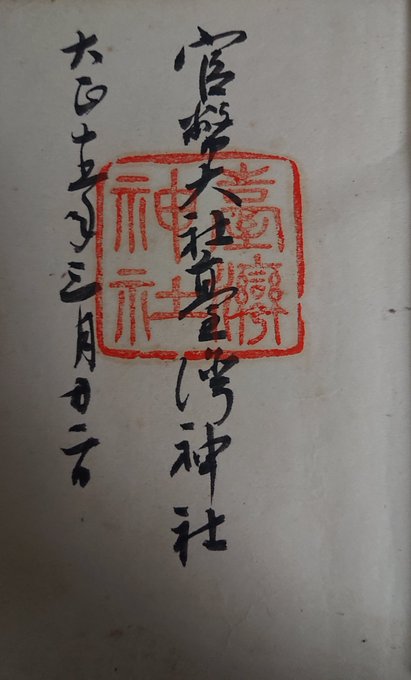 官幣大社臺灣神社
大正十五年三月廿二日
臺灣
神社